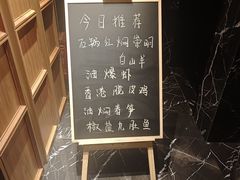 今日推荐
石锅红焖崇明
白山羊
油爆虾
香港脆皮鸡
油焖春笋
椒盐九肚鱼